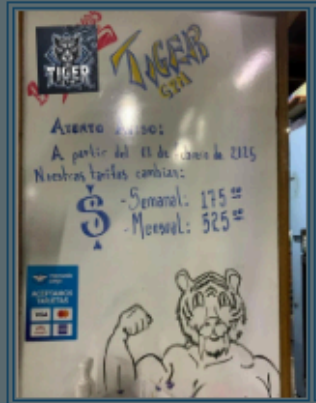 TIGER
TIGER
GYM
ATENTO AVISO:
A partir del de febrero de 2025
Nuestras tarifas cambian:
$
-Semanal: 175 00
-Mensual: 525 00
ACEPTAMOS
TARJETAS
VISA